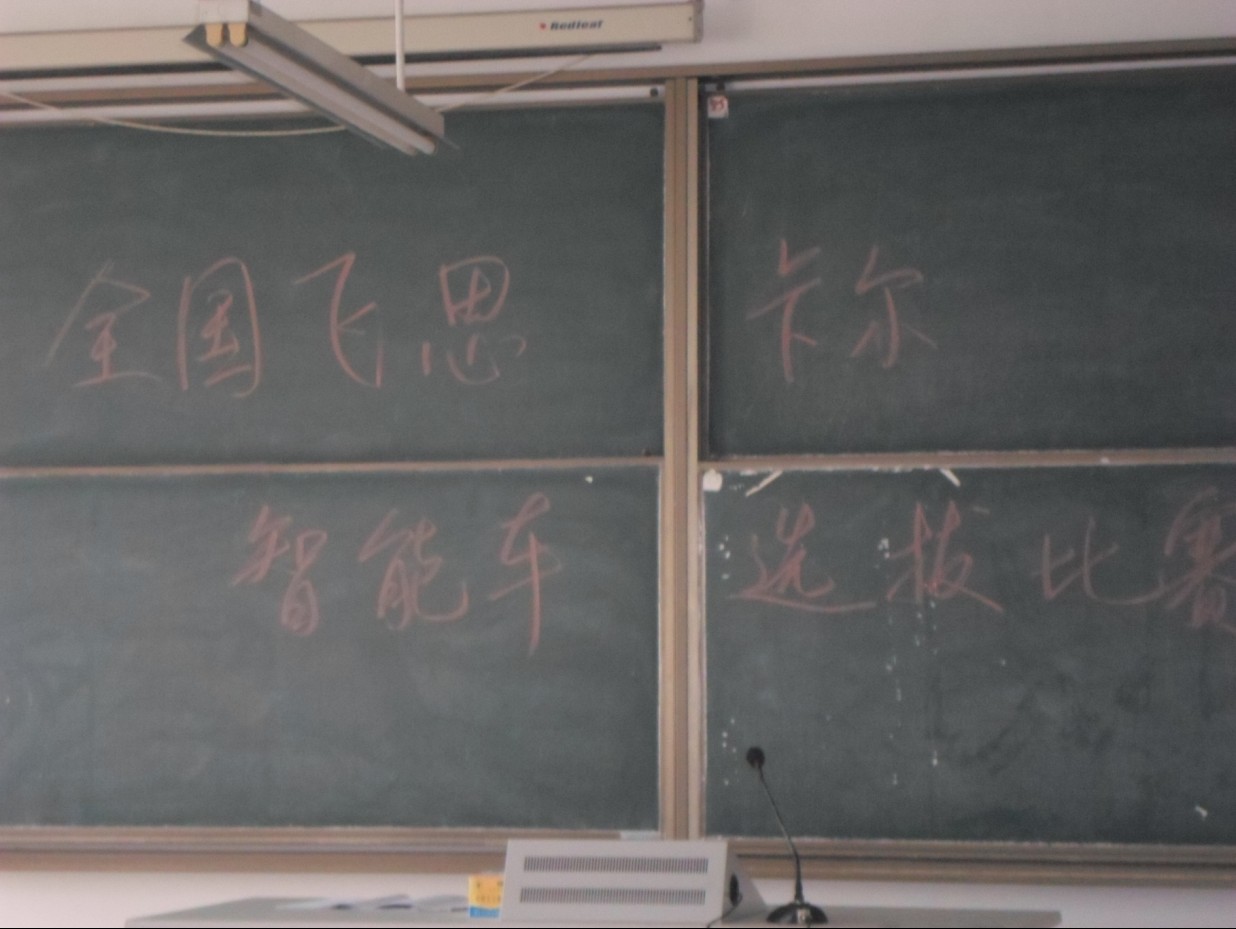 Redleaf
全国飞思卡尔
智能车选拔比赛